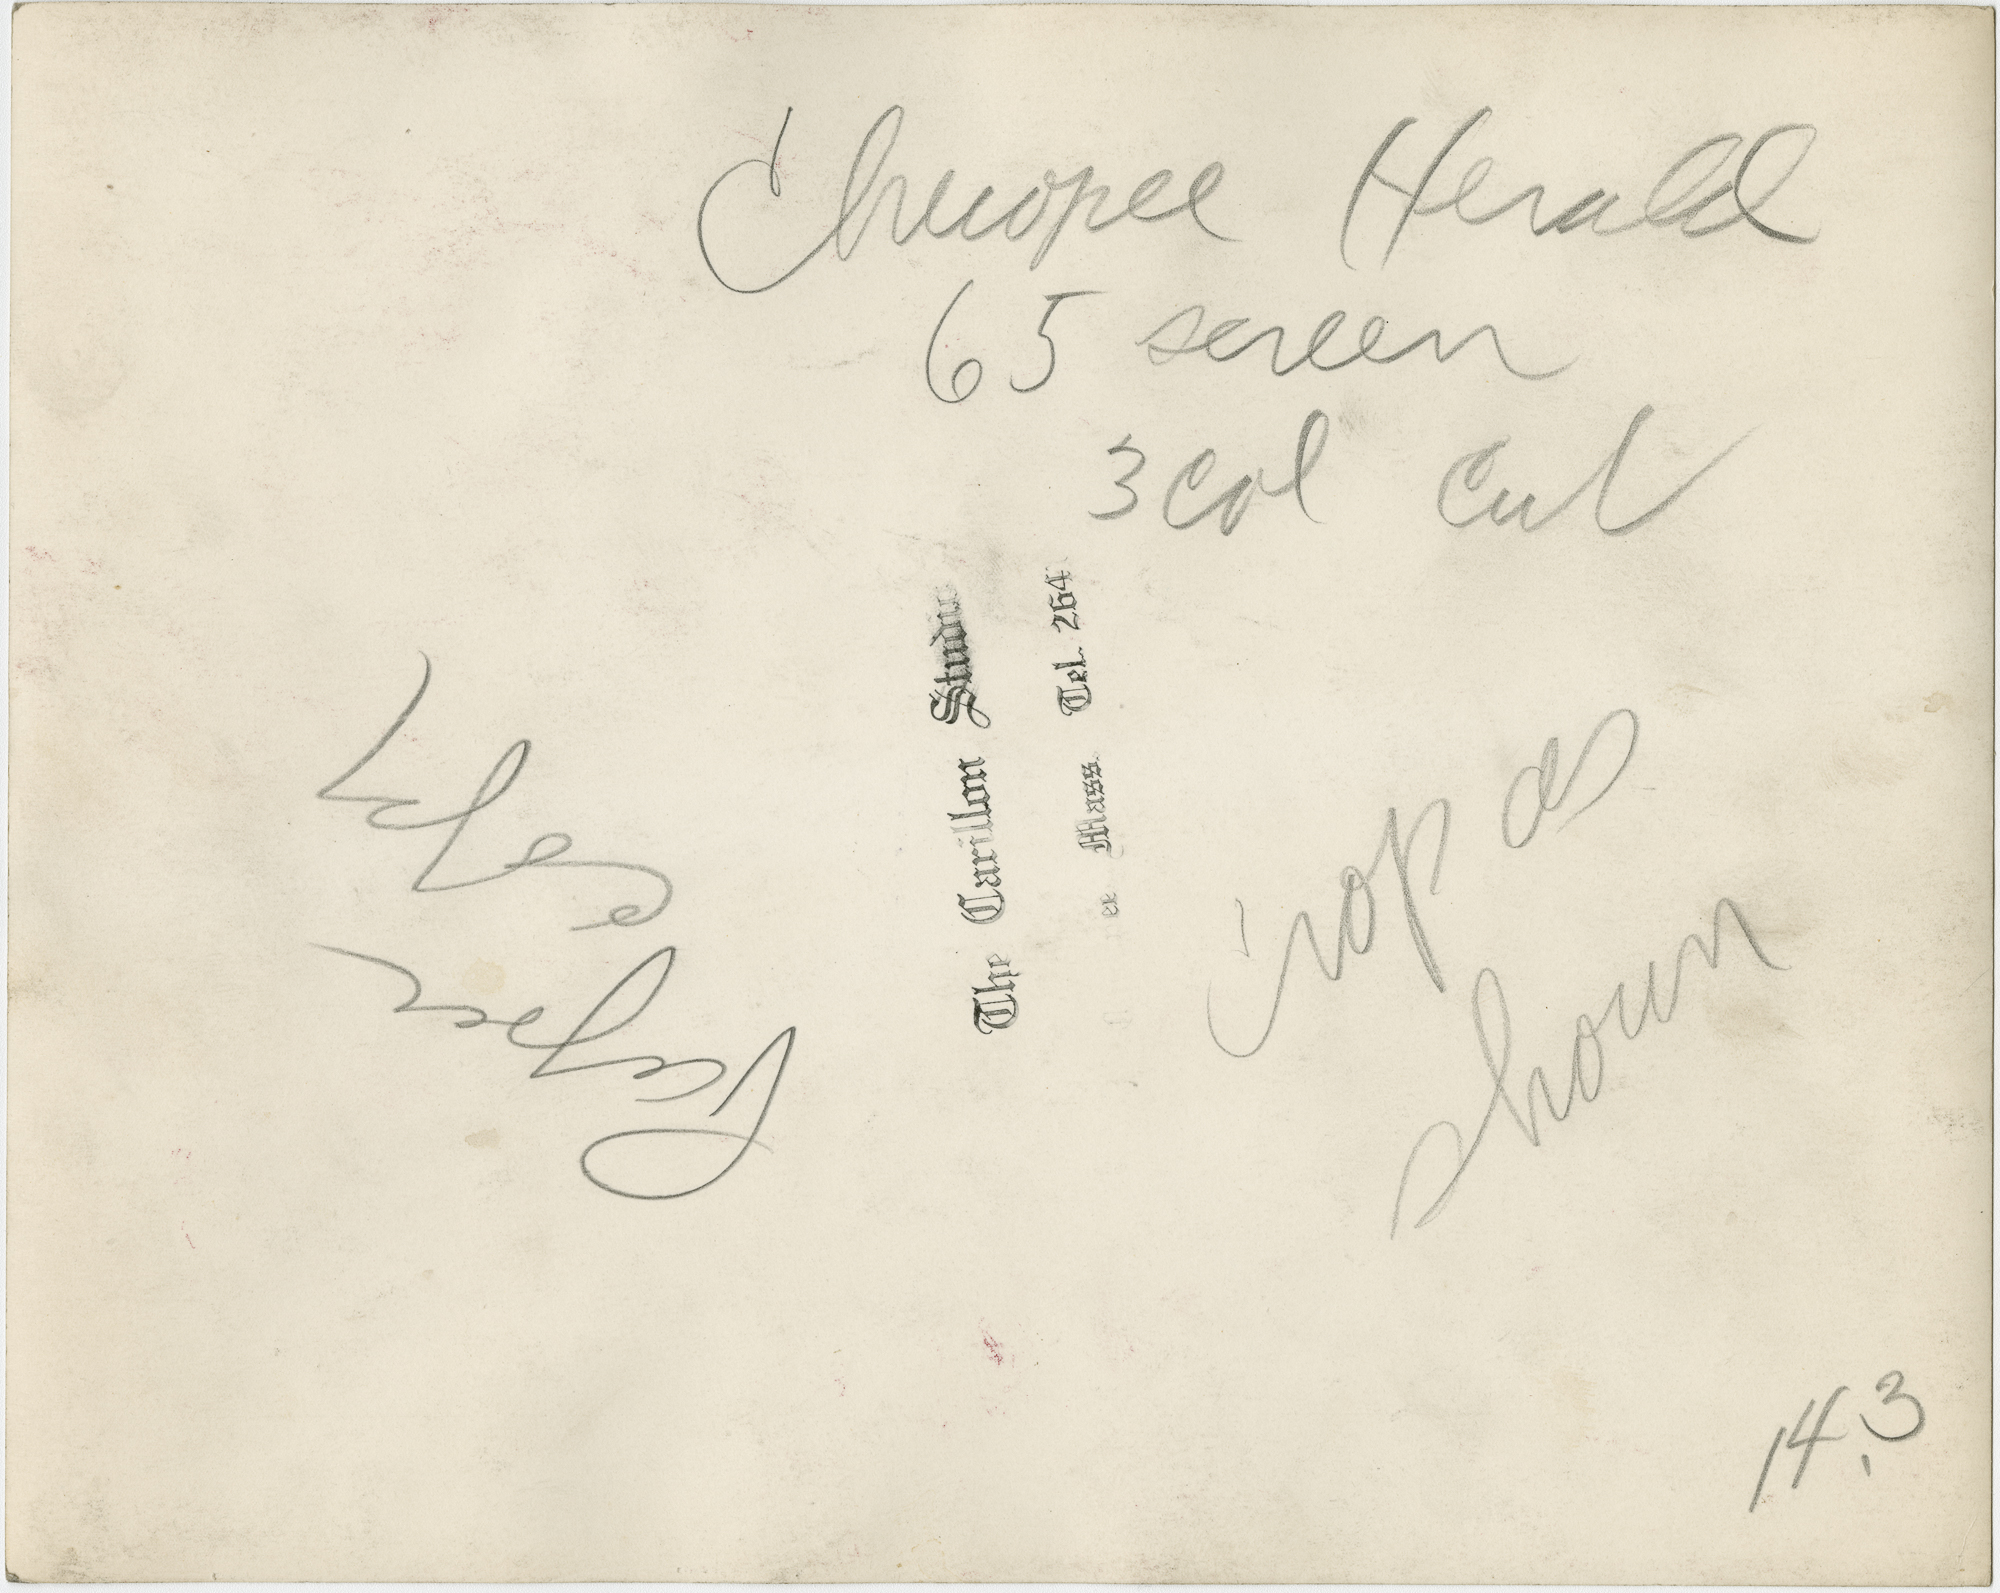 Chicopee Herald
65 screen
3 col cut
The Carillon Studio
Mass. Tel. 264
Crop as
shown
14.3